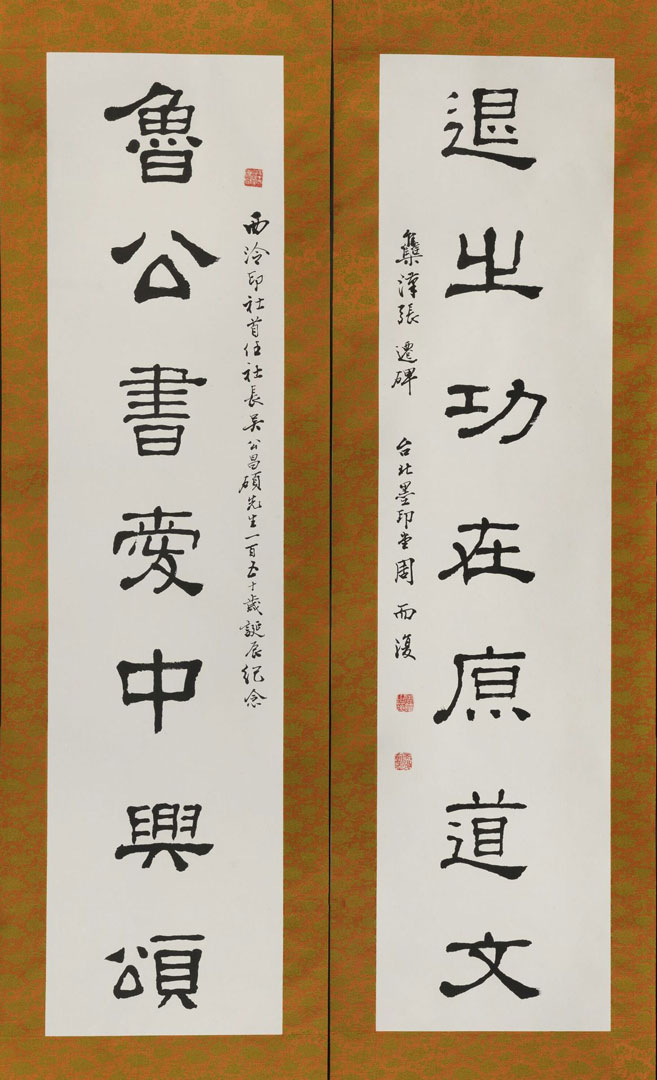 退之功在原道文
集漢張遷碑 台北墨印堂周而
西泠印社首任社長吴公昌碩先生一百五十歲誕辰紀念
魯公書愛中興頌